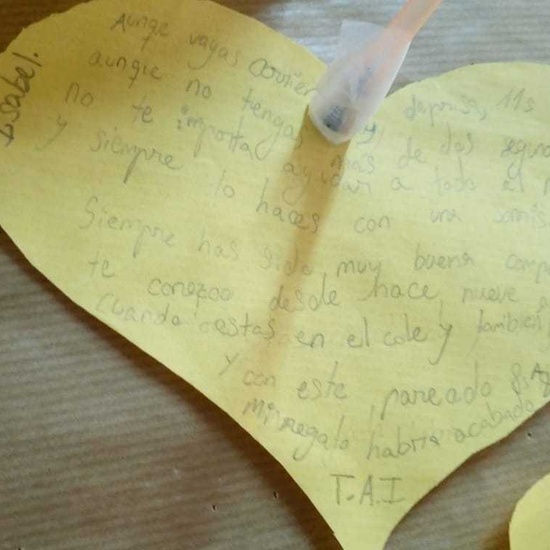 Isabel.
Aunqe vagas deprisa,
y aunqie no tengas más de dos
no te importa ayudar a todo el
y siempre lo haces con una
Siempre has sido muy buena
te conozco desde hace nueve
Cuando estas en el cole y también
y con este pareado
mi regalo habría acabado
T.A.I